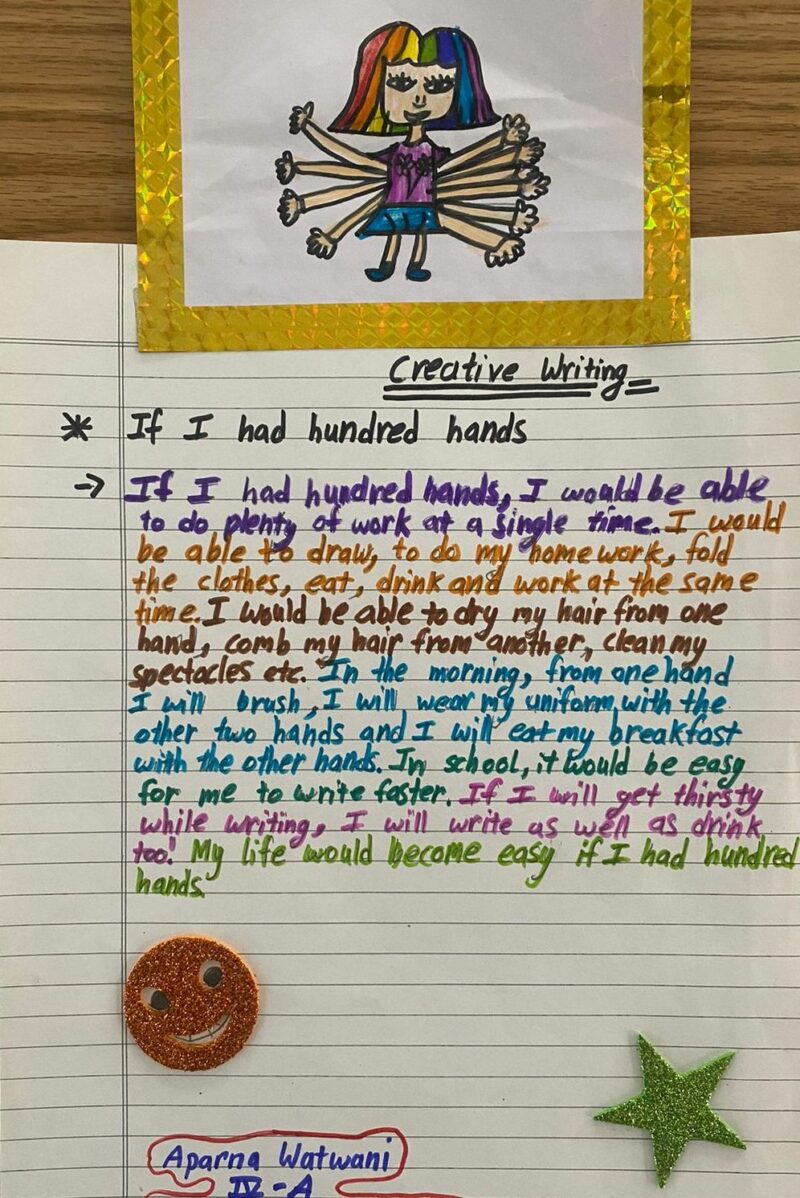 Creative Writing
* If I had hundred hands
→ If I had hundred hands, I would be able
to do plenty of work at a single time. I would
be able to draw, to do my homework, fold
the clothes, eat, drink and work at the same
time. I would be able to dry my hair from one
hand, comb my hair from another, clean my
spectacles etc. In the morning, from one hand
I will brush, I will wear my uniform with the
other two hands and I will eat my breakfast
with the other hands. In school, it would be easy
for me to write faster. If I will get thirsty
while writing, I will write as well as drink
too! My life would become easy if I had hundred
hands.
Aparna Watwani
IV-A